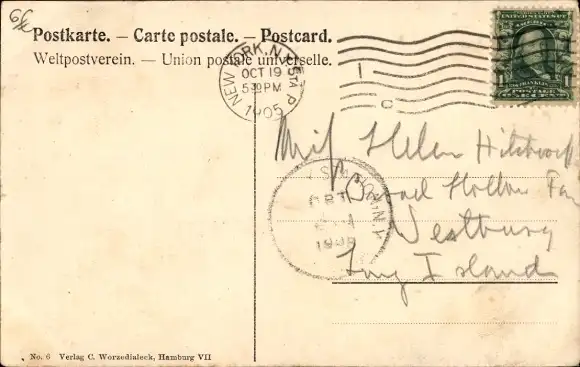 Postkarte. — Carte postale. — Postcard.
Weltpostverein. — Union postale universelle.
NEW YORK, N.Y. STA P
OCT 19
5 30 PM
1905
1
C
UNITED STATES OF AMERICA
FRANKLIN
POSTAGE
1 1
Miss Helen Hitchcock
Broad Hollow Far
Westbury
Long Island
N.Y.
OCT
1905
No. 6 Verlag C. Worzedialeck, Hamburg VII